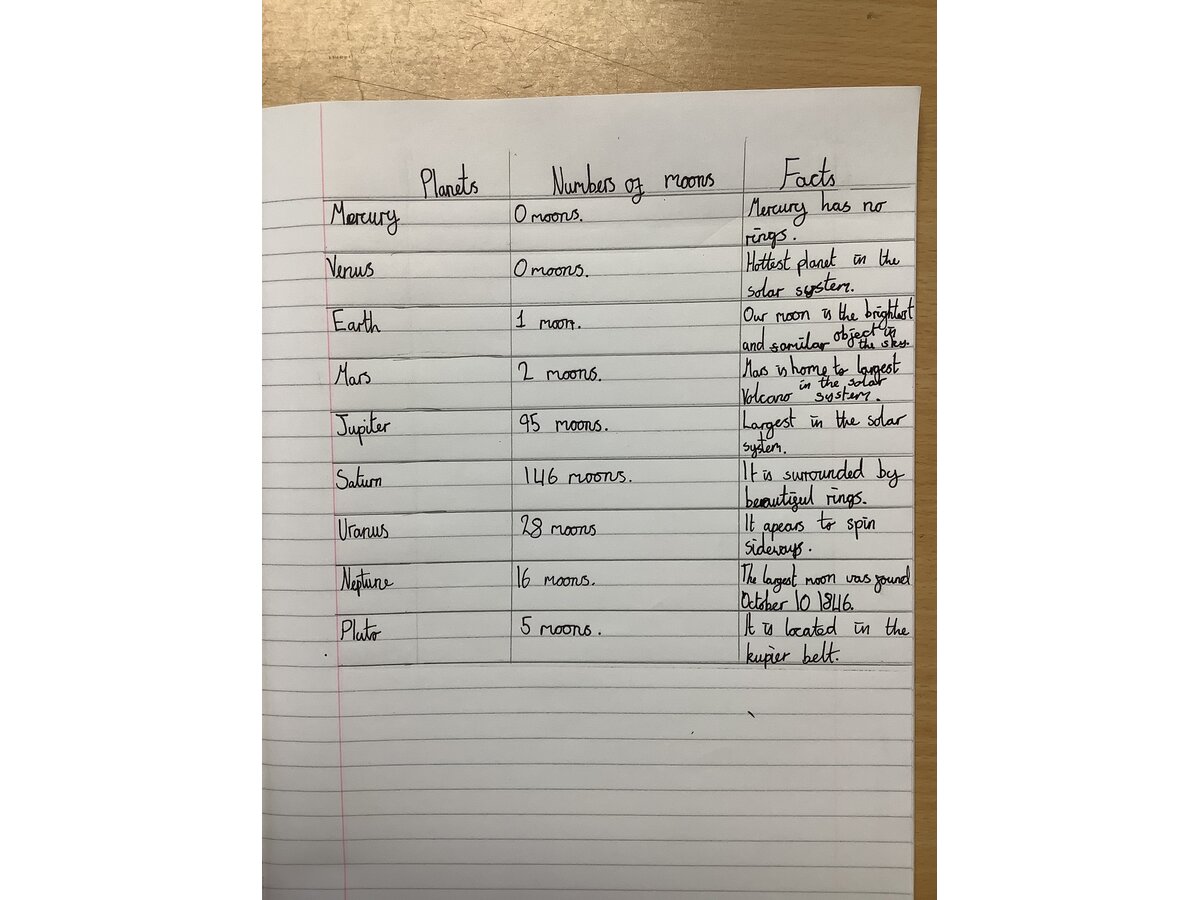 Planets Numbers of moons Facts
Mercury 0 moons. Mercury has no
rings.
Venus 0 moons. Hottest planet in the
solar system.
Earth 1 moon. Our moon is the brightest
and somilar object in
the sky.
Mars 2 moons. Mars is home to largest
Volcano in the solar
system.
Jupiter 95 moons. Largest in the solar
system.
Saturn 146 moons. It is surrounded by
beautiful rings.
Uranus 28 moons It apears to spin
sideways.
Neptune 16 moons. The largest moon was found
October 10 1846.
Pluto 5 moons. It is located in the
kupier belt.